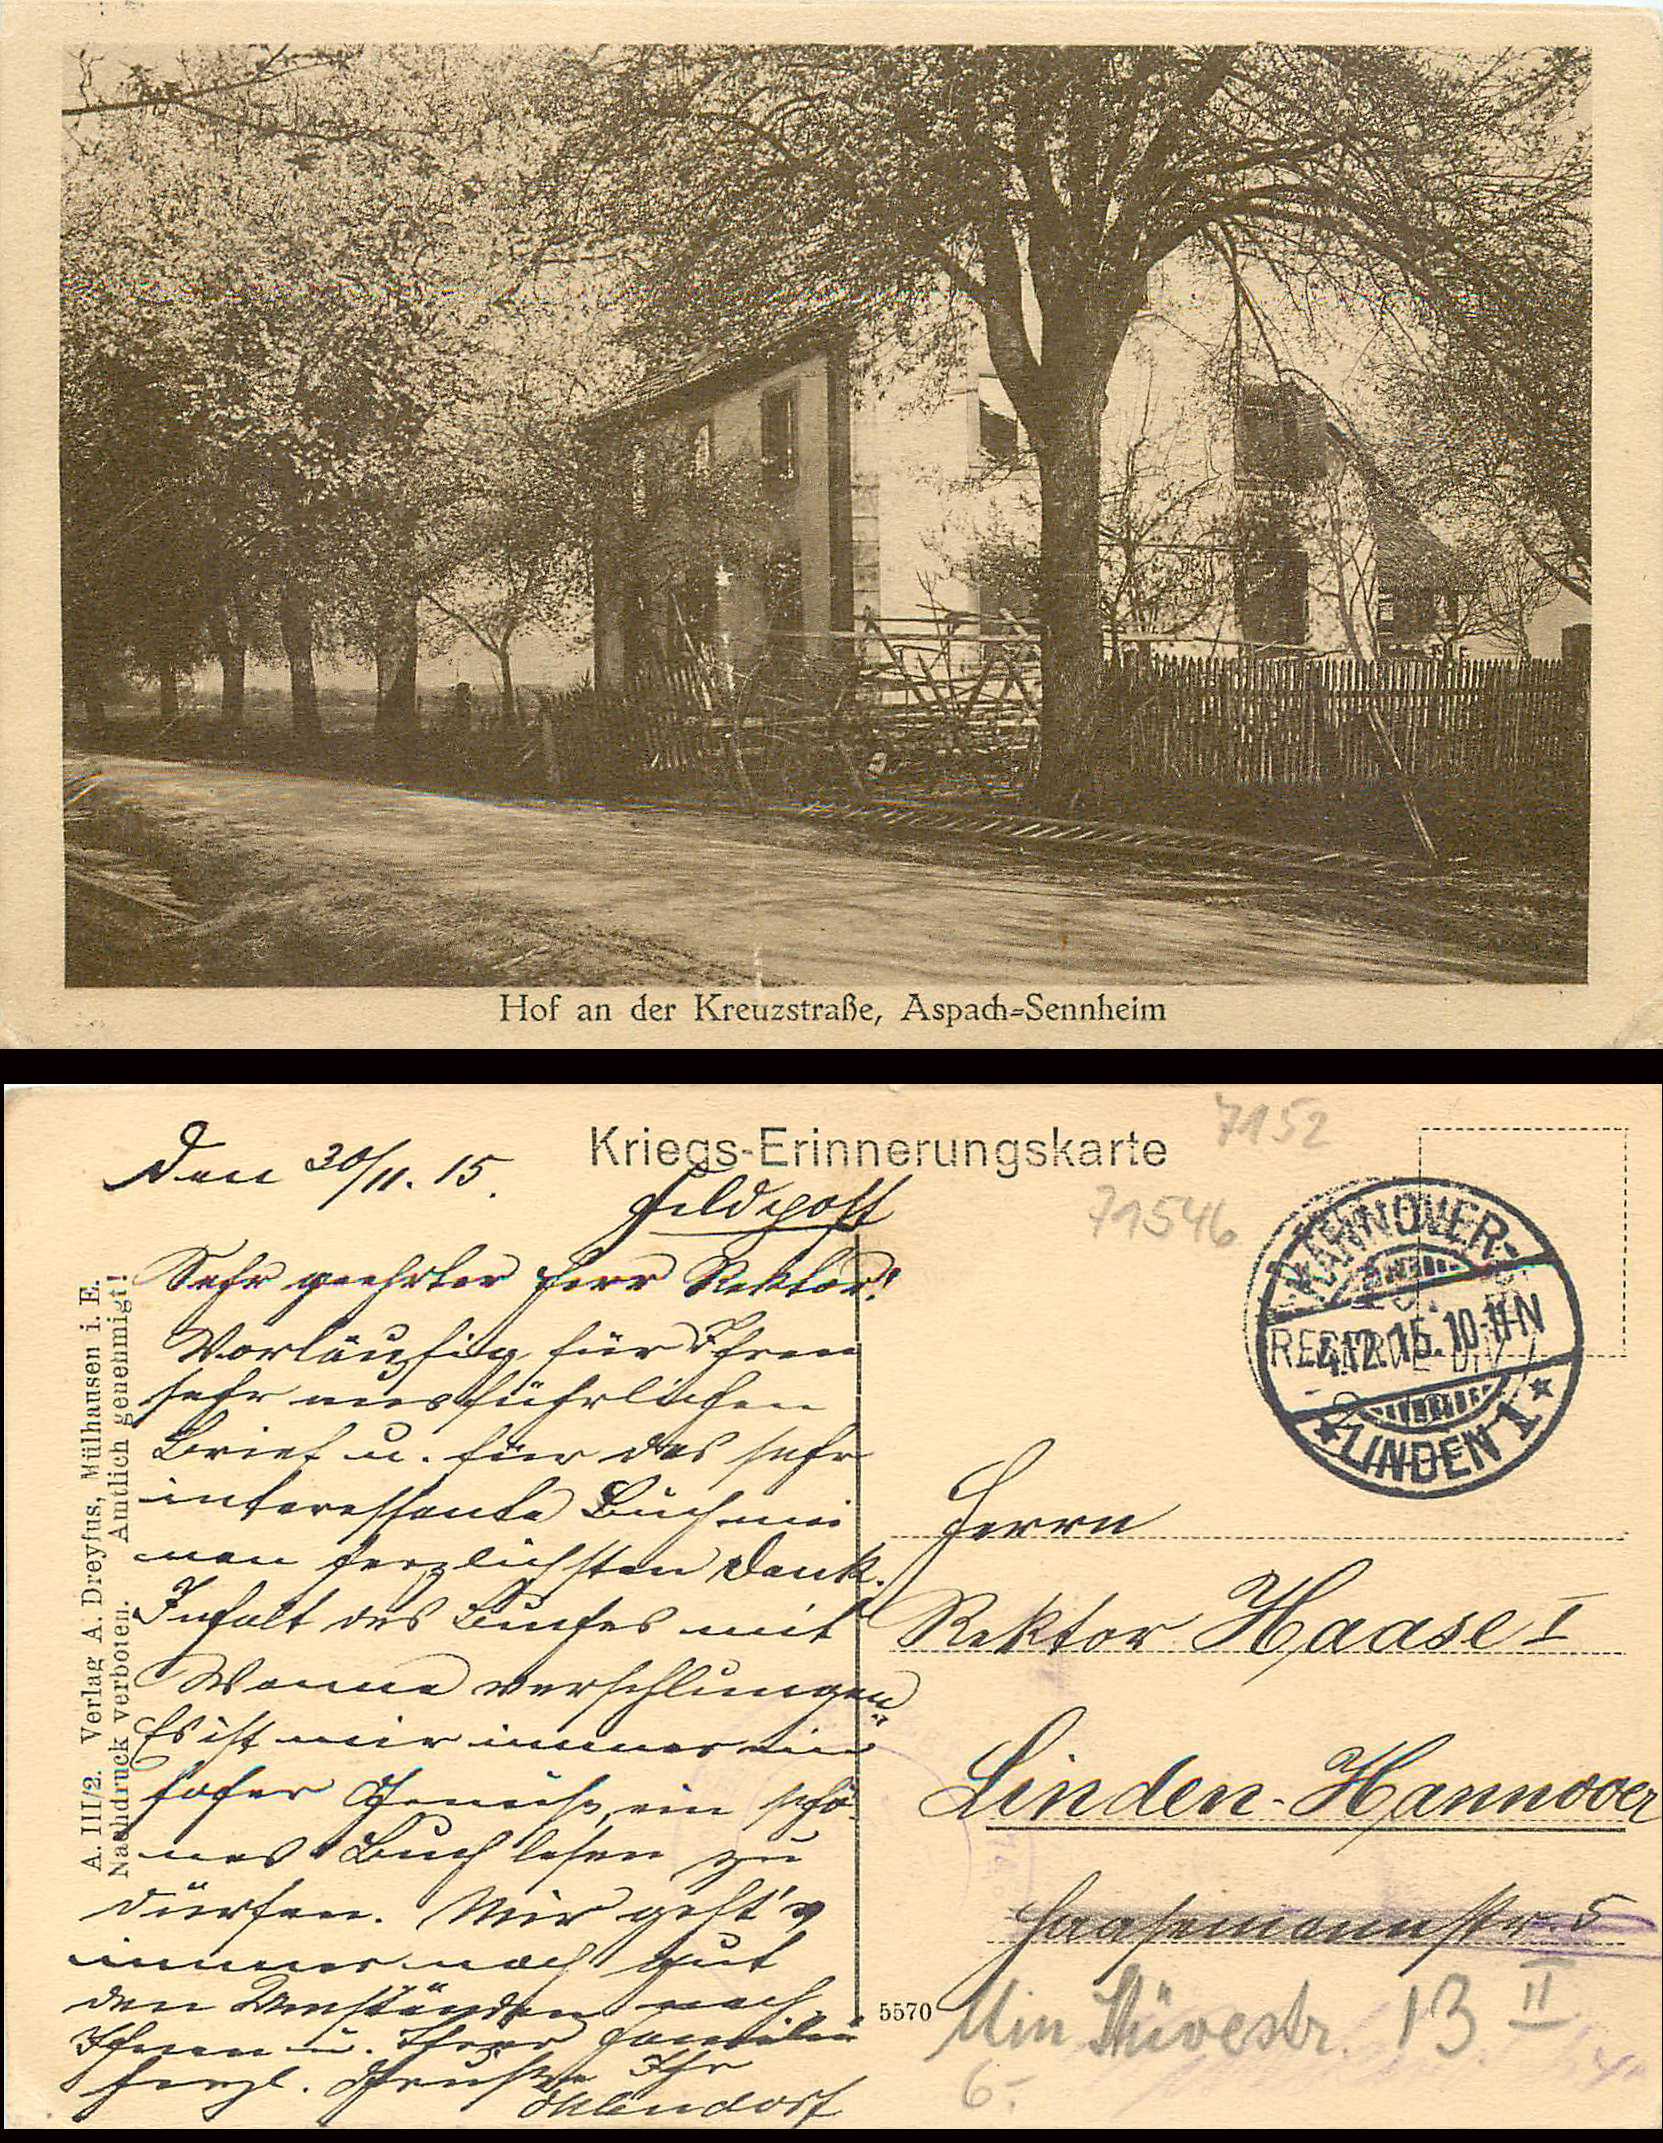 Hof an der Kreuzstraße, Aspach=Sennheim
Kriegs-Erinnerungskarte
7152
71546
Den 30/11. 15.
Feldpost
Sehr geehrter Herr Rektor!
Vorläufig für Ihren
sehr ausführlichen
Brief u. für das sehr
interessante Buch mei
nen herzlichsten Dank.
Inhalt des Buches mit
Wonne verschlungen.
Es ist mir immer ein
hoher Genuß, ein schö-
nes Buch lesen zu
dürfen. Mir geht's
immer noch gut
den Umständen nach.
Ihnen u. Ihrer Familie
herzl. Grüße Ihr
Ohlendorf
A. III/2. Verlag A. Dreyfus, Mülhausen i. E.
Nachdruck verboten. Amtlich genehmigt!
HANNOVER-
4.12.15. 10-11N
* LINDEN 1 *
Herrn
Rektor Haase I
Linden-Hannover
Haasemannstr. 5
5570
Min Stüvestr. 13 II
6.-